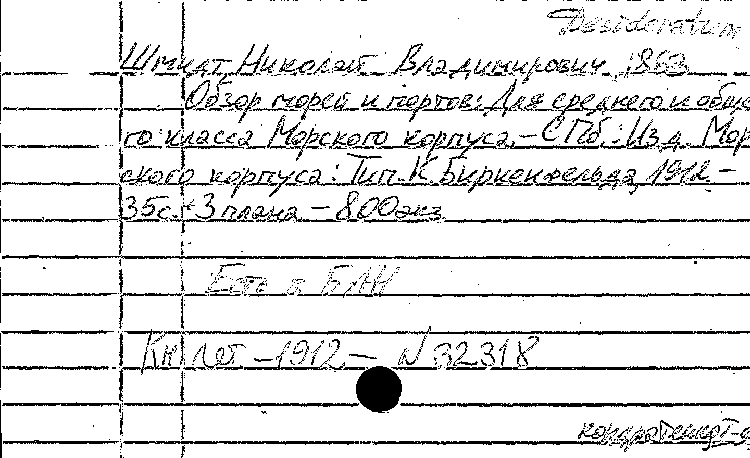 Desideratum
Шмидт, Николай Владимирович, 1863
Обзор морей и портов: Для среднего и обще
го класса Морского корпуса. - СПб.: Изд. Мор
ского корпуса: Тип. К. Биркенфельда, 1912 -
35с. + 3 плана - 800 экз
Есть в БАН
Кн лет - 1912 - N 32318